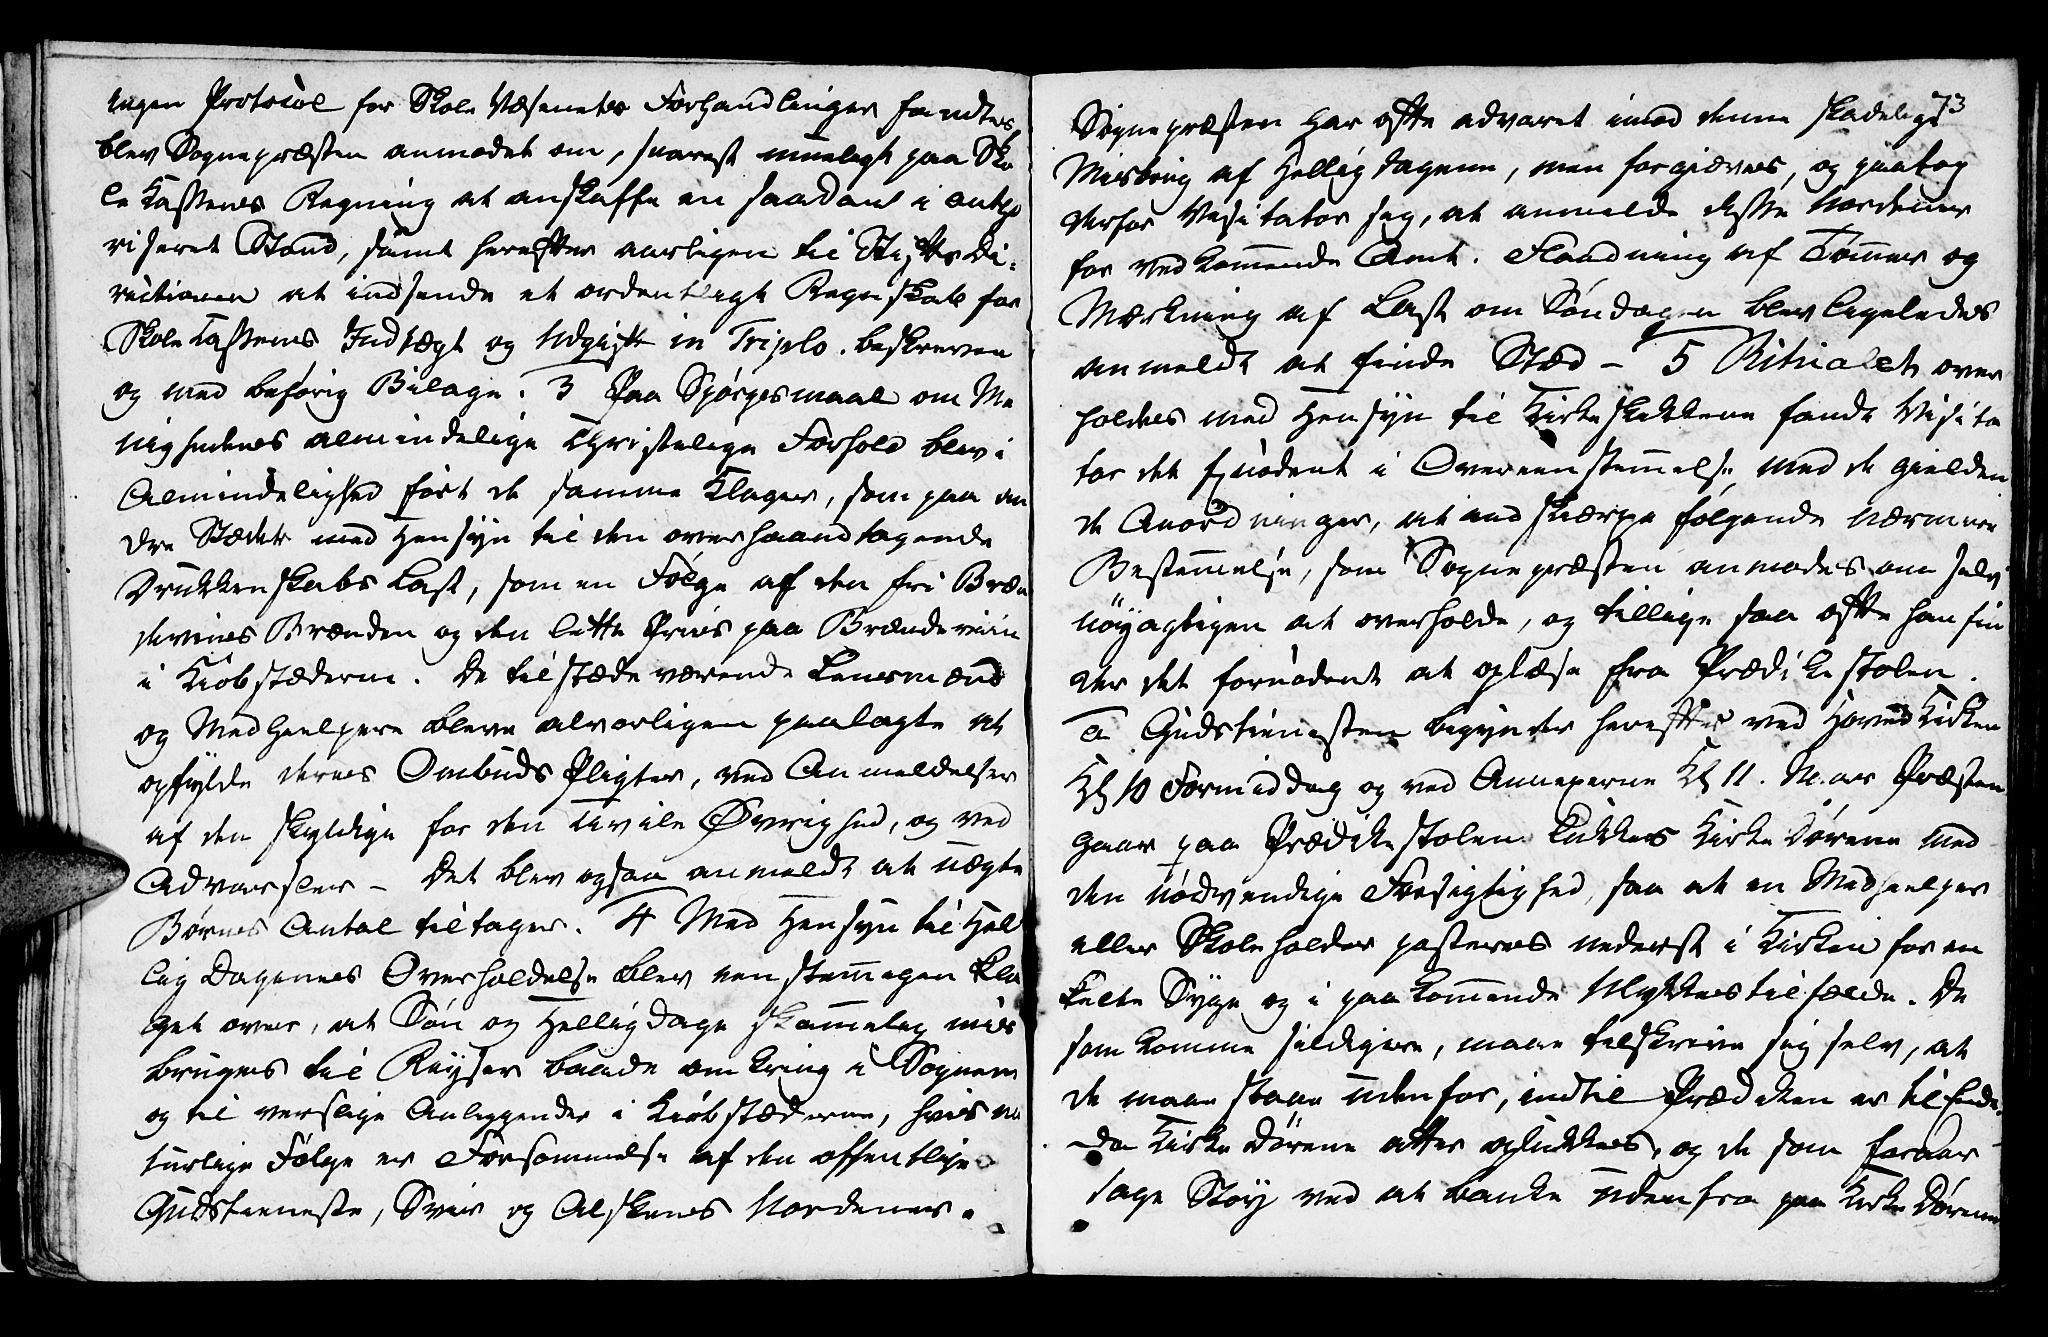 ingen Protocol for Skole Væsenetes Forhandlinger fandtes
blev Sognepræsten anmodet om, snarest mueligt paa Sko
le Kassenes Regning at anskaffe en saadan i autho
riseret Stand, samt herefter aarligen til Stifts Di,
rectionen at indsende et ordentligt Regnskab for
Skole Kassenes Indtægt og Udgift in Triplo beskreven
og med behørig Bilage. 3 Paa Spørgesmaal om Me
nighedenes almindelige Christelige Forhold blev i
Almindelighed ført de samme Klager, som paa an
dre Stæder med Hensyn til den overhaandtagende
Drukkenskabs Last, som en Følge af den fri Bræn
deviins Brænden og den lette Priis paa Brændeviin
i Kiøbstæderne. De tilstædeværende Lensmænd
og Medhielpere bleve alvorligen paalagte at
opfylde deres Ombuds Pligter, ved Anmeldelser
af den skyldige for den Civile Øvrighed, og ved
Advarsler - Det blev ogsaa anmeldt at uægte
Børnes Antal tiltager. 4 Med Hensyn til Hel
lig Dagenes Overholdelse blev eenstemmigen kla
get over, at Søn og Helligdage skammelig mis
bruges til Reyser baade omkring i Sognene
og til verslige Anliggender i Kiøbstæderne, hvis na
turlige Følge er Forsømmelse af den offentlige
Gudstieneste, Sviir og Alskens Uordener.
73
Sognepræsten har ofte advaret imod denne skadelige
Misbrug af Helligdagene, men forgiæves, og paatog
derfor Visitator sig, at anmelde disse Uordener
for vedkommende Amt. Flaadning af Tømmer og
Mærkning af Last om Søndagen blev ligeledes
anmeldt at finde Stæd - 5 Ritualets over
holdes med Hensyn til Kirkeskikkene fandt Visita
tor det fornødent i Overeenstemmelse med de gielden
de Anordninger, at indskærpe følgende nærmere
Bestemmelse, som Sognepræsten anmodes om selv
nøyagtigen at overholde, og tillige saa ofte han fin
der det fornødent at oplæse fra Prædikestolen.
a Gudstienesten begynder herefter ved Hoved Kirken
Kl 10 Formiddag og ved Annexerne Kl 11. Naar Præsten
gaar paa Prædikestolen lukkes Kirke Dørene med
den nødvendige Forsigtighed, saa at en Medhielper
eller Skoleholder posteres nederst i Kirken for en
kelte Syge og i paakommende Ulykkestilfælde. De
som komme sildigere, maae tilskrive sig selv, at
de maae staae udenfor, indtil Prædiken er tilende,
da Kirke Dørene atter oplukkes, og de som foraar
sage Støy ved at banke udenfra paa Kirke Dørene